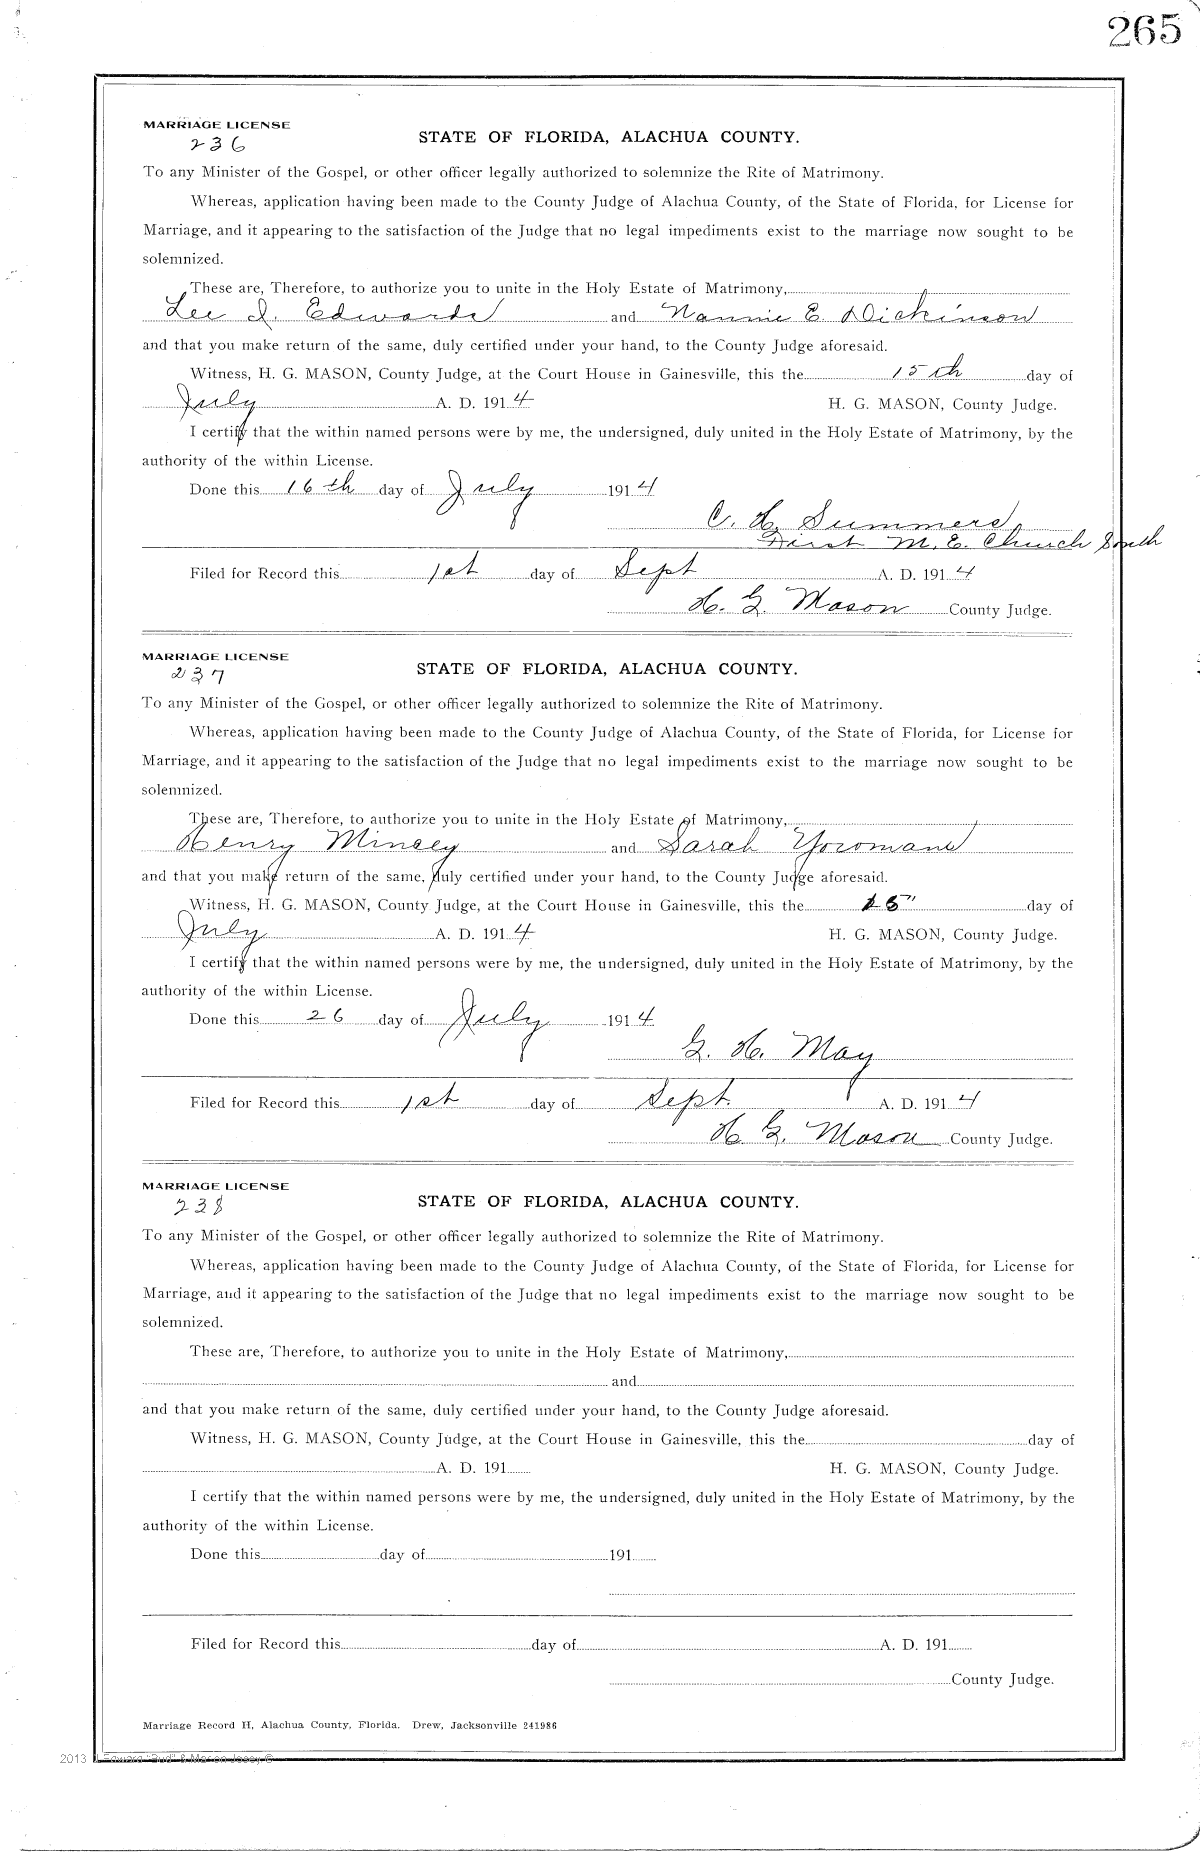 265
MARRIAGE LICENSE
236
STATE OF FLORIDA, ALACHUA COUNTY.
To any Minister of the Gospel, or other officer legally authorized to solemnize the Rite of Matrimony.
Whereas, application having been made to the County Judge of Alachua County, of the State of Florida, for License for
Marriage, and it appearing to the satisfaction of the Judge that no legal impediments exist to the marriage now sought to be
solemnized.
These are, Therefore, to authorize you to unite in the Holy Estate of Matrimony,
Lee J. Edwards and Nannie E. Dickinson
and that you make return of the same, duly certified under your hand, to the County Judge aforesaid.
Witness, H. G. MASON, County Judge, at the Court House in Gainesville, this the 15th day of
July A. D. 1914 H. G. MASON, County Judge.
I certify that the within named persons were by me, the undersigned, duly united in the Holy Estate of Matrimony, by the
authority of the within License.
Done this 16th day of July 1914
C. H. Summers
First M. E. Church South
Filed for Record this 1st day of Sept A. D. 1914
H. G. Mason County Judge.
MARRIAGE LICENSE
237
STATE OF FLORIDA, ALACHUA COUNTY.
To any Minister of the Gospel, or other officer legally authorized to solemnize the Rite of Matrimony.
Whereas, application having been made to the County Judge of Alachua County, of the State of Florida, for License for
Marriage, and it appearing to the satisfaction of the Judge that no legal impediments exist to the marriage now sought to be
solemnized.
These are, Therefore, to authorize you to unite in the Holy Estate of Matrimony,
Henry Mincey and Sarah Yoromans
and that you make return of the same, duly certified under your hand, to the County Judge aforesaid.
Witness, H. G. MASON, County Judge, at the Court House in Gainesville, this the day of
July A. D. 1914 H. G. MASON, County Judge.
I certify that the within named persons were by me, the undersigned, duly united in the Holy Estate of Matrimony, by the
authority of the within License.
Done this 26 day of July 1914
G. H. May
Filed for Record this 1st day of Sept. A. D. 1914
H. G. Mason County Judge.
MARRIAGE LICENSE
238
STATE OF FLORIDA, ALACHUA COUNTY.
To any Minister of the Gospel, or other officer legally authorized to solemnize the Rite of Matrimony.
Whereas, application having been made to the County Judge of Alachua County, of the State of Florida, for License for
Marriage, and it appearing to the satisfaction of the Judge that no legal impediments exist to the marriage now sought to be
solemnized.
These are, Therefore, to authorize you to unite in the Holy Estate of Matrimony,
and
and that you make return of the same, duly certified under your hand, to the County Judge aforesaid.
Witness, H. G. MASON, County Judge, at the Court House in Gainesville, this the day of
A. D. 191 H. G. MASON, County Judge.
I certify that the within named persons were by me, the undersigned, duly united in the Holy Estate of Matrimony, by the
authority of the within License.
Done this day of 191
Filed for Record this day of A. D. 191
County Judge.
Marriage Record H, Alachua County, Florida. Drew, Jacksonville 241986
2013 J Edward "Bud" & Marion Josey ©